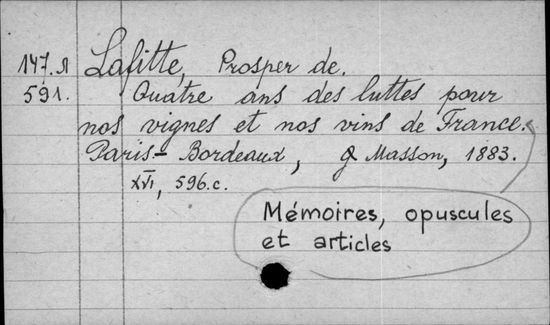 147.Я Lafitte, Prosper de.
591. Quatre ans des luttes pour
nos vignes et nos vins de France.
Paris - Bordeaux, G Masson, 1883.
XVI, 596.c.
Mémoires, opuscules
et articles